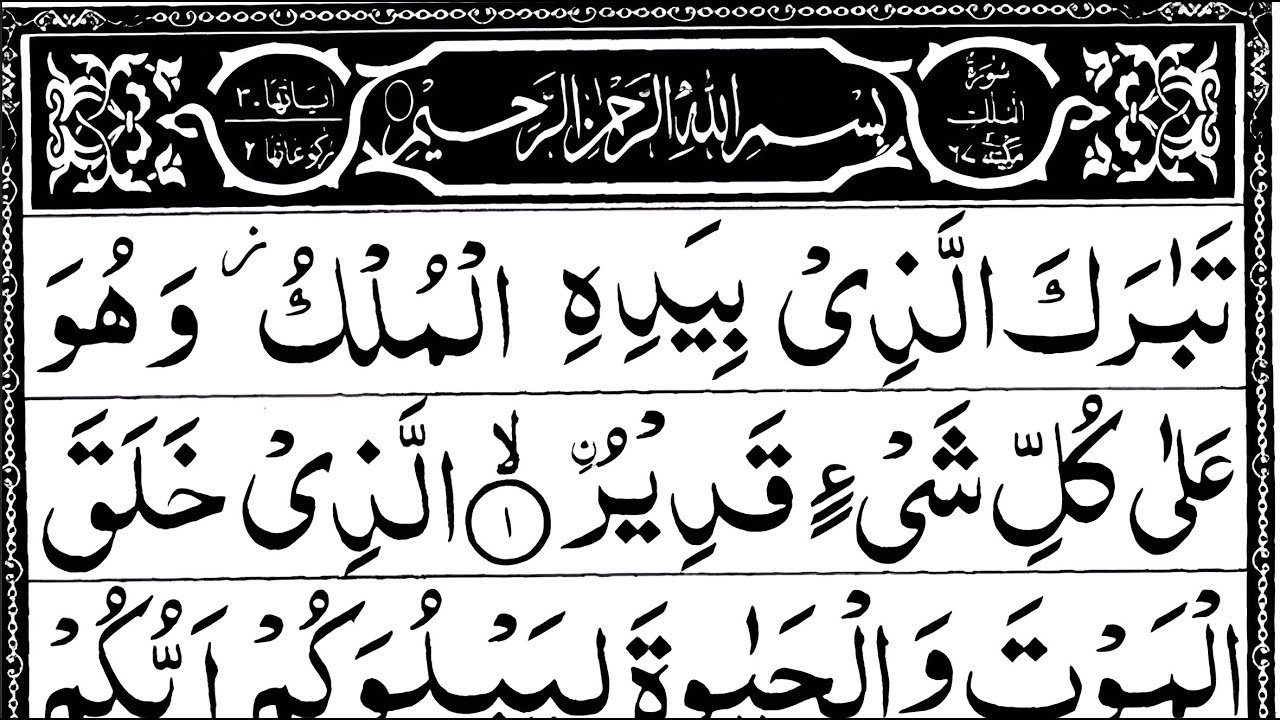 سُوْرَةُ
الْمُلْكِ
مَكِّيَّةٌ ٦٧
بِسْمِ اللّٰهِ الرَّحْمٰنِ الرَّحِيْمِ
اٰیَاتُهَا ٣٠
رُكُوْعَاتُهَا ٢
تَبٰرَكَ الَّذِیْ بِیَدِهِ الْمُلْكُ ؗ وَهُوَ
عَلٰی كُلِّ شَیْءٍ قَدِیْرُ ۙ ﴿۱﴾ الَّذِیْ خَلَقَ
الْمَوْتَ وَالْحَیٰوةَ لِیَبْلُوَكُمْ اَیُّكُمْ